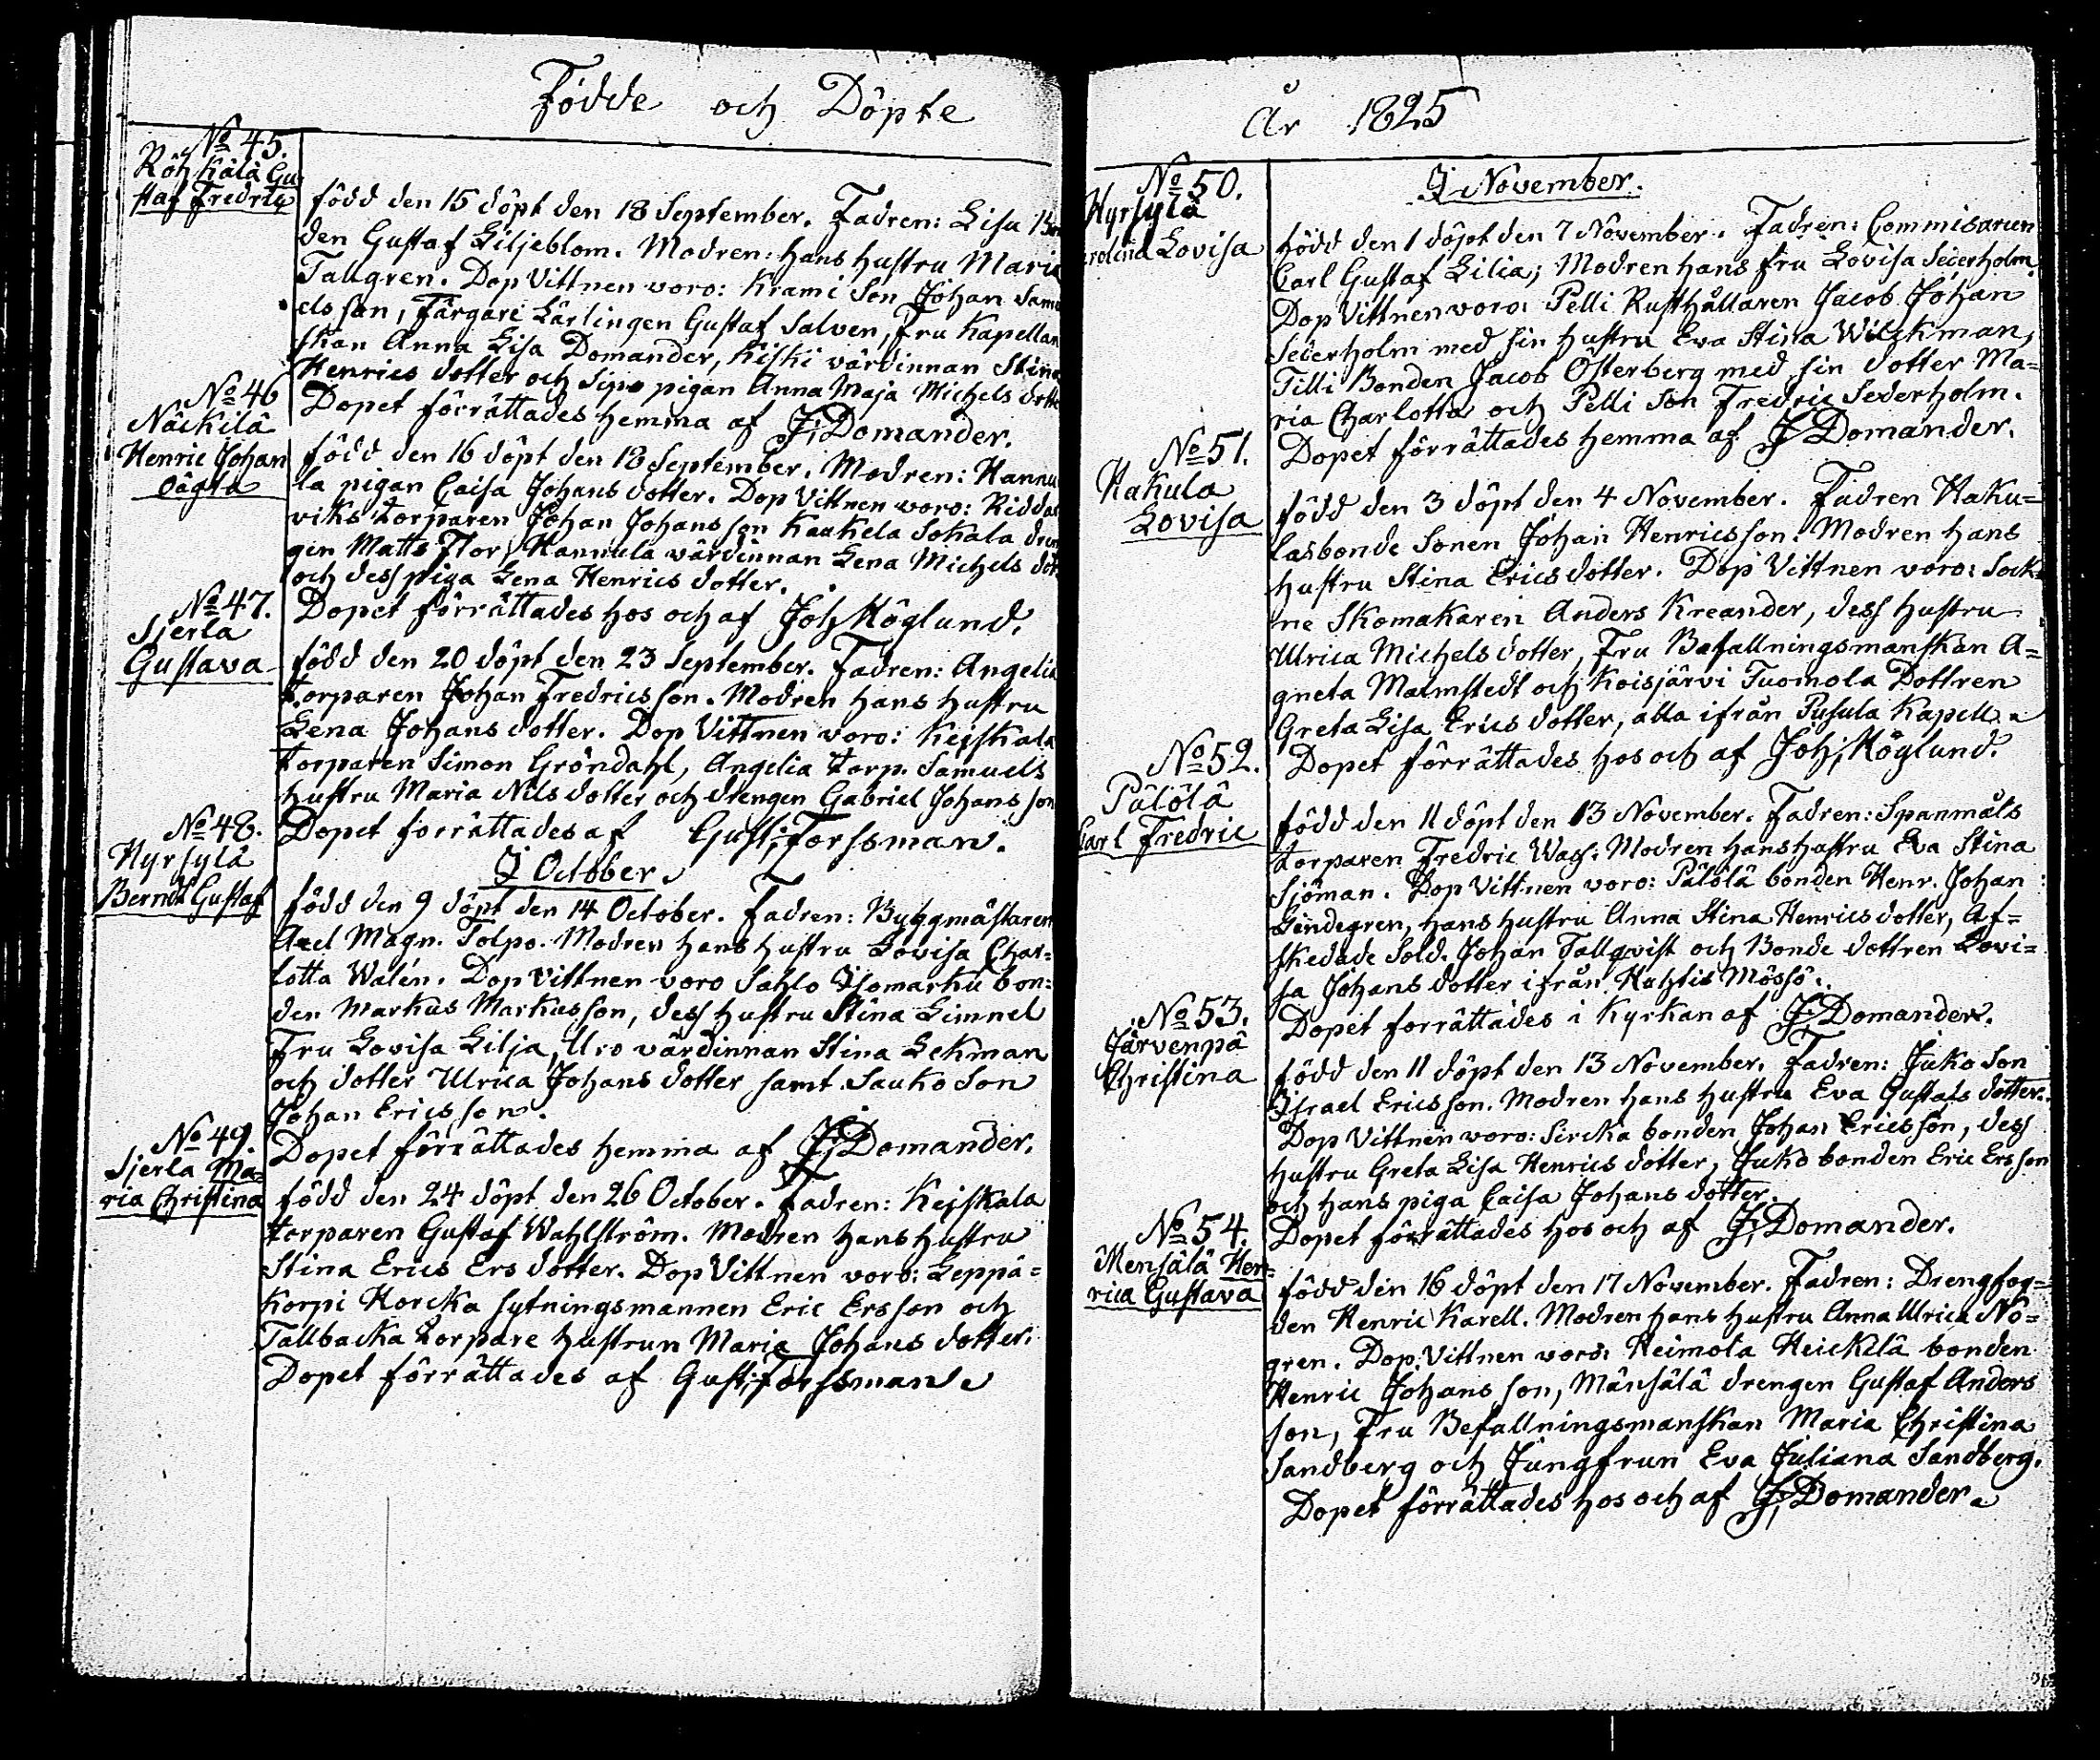 Födde och Döpte
No 45.
Röhkälä Gu-
staf Fredric
född den 15 döpt den 18 September. Fadren: Lisu Bon
den Gustaf Liljeblom. Modren: hans hustru Maria
Tallgren. Dop Vittnen voro: Krami Son Johan Samu
elsson, Färgare Lärlingen Gustaf Salven, Fru Kapellan
skan Anna Lisa Domander, Kiski värdinnan Stina
Henrics dotter och Sipo pigan Anna Maja Michels dotte
Dopet förrättades hemma af J; Domander.
No 46
Näckilä
Henric Johan
oägta
född den 16 döpt den 18 September. Modren: Hannu
la pigan Caisa Johans dotter. Dop Vittnen voro: Riddas
viks torparen Johan Johansson Kaukela Sokala dren
gen Matts Flor, Hannula värdinnan Lena Michels dot
och dess piga Lena Henrics dotter.
Dopet förrättades hos och af Joh Höglund.
No 47.
Sjerla
Gustava
född den 20 döpt den 23 September. Fadren: Angelia
torparen Johan Fredricsson. Modren hans hustru
Lena Johans dotter. Dop Vittnen voro: Kejskala
torparen Simon Gröndahl, Angelia torp. Samuels
hustru Maria Nils dotter och drengen Gabriel Johansson
Dopet förrättades af Gust; Forssman.
J October.
No 48.
Hyrsylä
Berndt Gustaf
född den 9 döpt den 14 October. Fadren: Byggmästaren
Axel Magn. Tolpo. Modren hans hustru Lovisa Char=
lotta Walén. Dop Vittnen voro Sahlo Isomarku bon=
den Markus Markusson, dess hustru Stina Limnel
Fru Lovisa Lilja, Uro värdinnan Stina Lekman
och dotter Ulrica Johans dotter samt Sauko Son
Johan Ericsson.
Dopet förrättades hemma af J; Domander.
No 49.
Sjerla Ma=
ria Christina
född den 24 döpt den 26 October. Fadren: Kejskala
torparen Gustaf Wahlström. Modren hans hustru
Stina Erics Ers dotter. Dop Vittnen voro: Leppä=
korpi Horcka sytningsmannen Eric Ersson och
Tallbacka torpare hustrun Maria Johans dotter.
Dopet förrättades af Gust; Forssman.
År 1825
J November.
No 50.
Hyrsylä
rolina Lovisa
född den 1 döpt den 7 November. Fadren: Commisarien
Carl Gustaf Lilia; Modren hans fru Lovisa Sederholm.
Dop Vittnen voro: Pelli Rusthållaren Jacob Johan
Sederholm med sin hustru Eva Stina Witzkman,
Tilli Bonden Jacob Österberg med sin dotter Ma=
ria Charlotta och Pelli Son Fredric Sederholm.
Dopet förrättades hemma af J; Domander.
No 51.
Hakula
Lovisa
född den 3 döpt den 4 November. Fadren Haku=
lasbonde Sonen Johan Henricsson. Modren hans
hustru Stina Erics dotter. Dop Vittnen voro: Sock=
ne Skomakaren Anders Kreander, dess hustru
Ulrica Michels dotter, Fru Befallningsmanskan A=
gneta Malmstedt och Koisjärvi Tuomola Dottren
Greta Lisa Erics dotter, alla ifrån Pusula Kapell.
Dopet förrättades hos och af Joh; Höglund.
No 52.
Pälölä
Carl Fredric
född den 11 döpt den 13 November. Fadren: Spanmåls
torparen Fredric Wass: Modren hans hustru Eva Stina
Sjöman. Dop Vittnen voro: Pälölä bonden Henr. Johan
Lindegren, hans hustru Anna Stina Henrics dotter, Af=
skedade Sold. Johan Tallqvist och Bonde dottren Lovi=
sa Johans dotter ifrån Huhtis Mössö.
Dopet forrättades i Kyrkan af J; Domander.
No 53.
Järvenpä
Christina
född den 11 döpt den 13 November. Fadren: Juko Son
Israel Ericsson. Modren hans hustru Eva Gustafs dotter.
Dop Vittnen voro: Sircka bonden Johan Ericsson, dess
hustru Greta Lisa Henrics dotter, Juko bonden Eric Ersson
och hans piga Caisa Johans dotter.
Dopet förrättades hos och af J; Domander.
No 54.
Mensälä Hen=
rica Gustava
född den 16 döpt den 17 November. Fadren: Drengfog=
den Henric Karell. Modren hans hustru Anna Ulrica No=
gren. Dop. Vittnen voro: Heimola Heickilä bonden
Henric Johansson, Mänsälä drengen Gustaf Anders
son, Fru Befallningsmanskan Maria Christina
Sandberg och Jungfrun Eva Juliana Sandberg.
Dopet förrättades hos och af J; Domander.